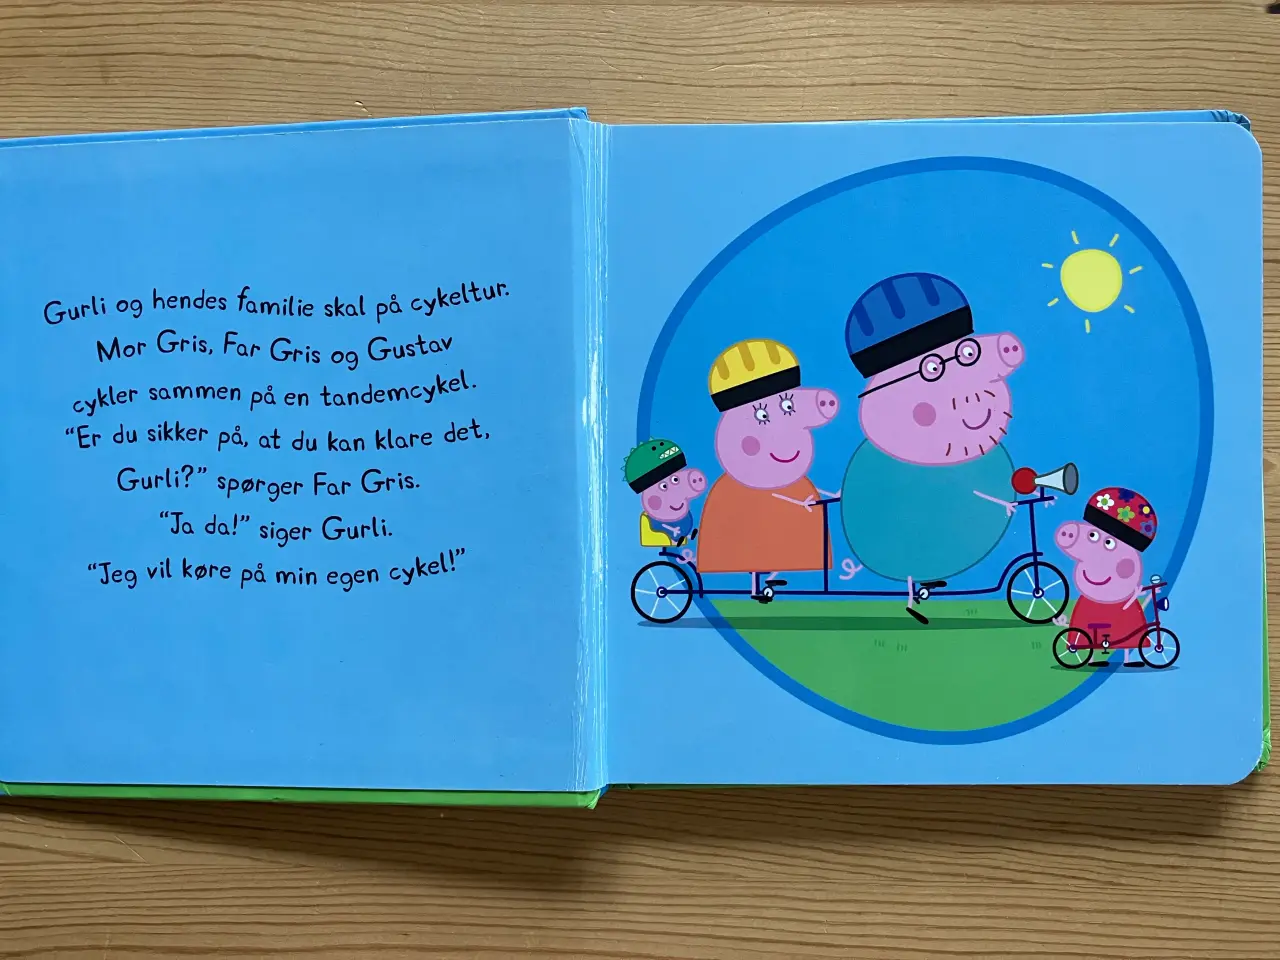 Gurli og hendes familie skal på cykeltur.
Mor Gris, Far Gris og Gustav
cykler sammen på en tandemcykel.
“Er du sikker på, at du kan klare det,
Gurli?” spørger Far Gris.
“Ja da!” siger Gurli.
“Jeg vil køre på min egen cykel!”